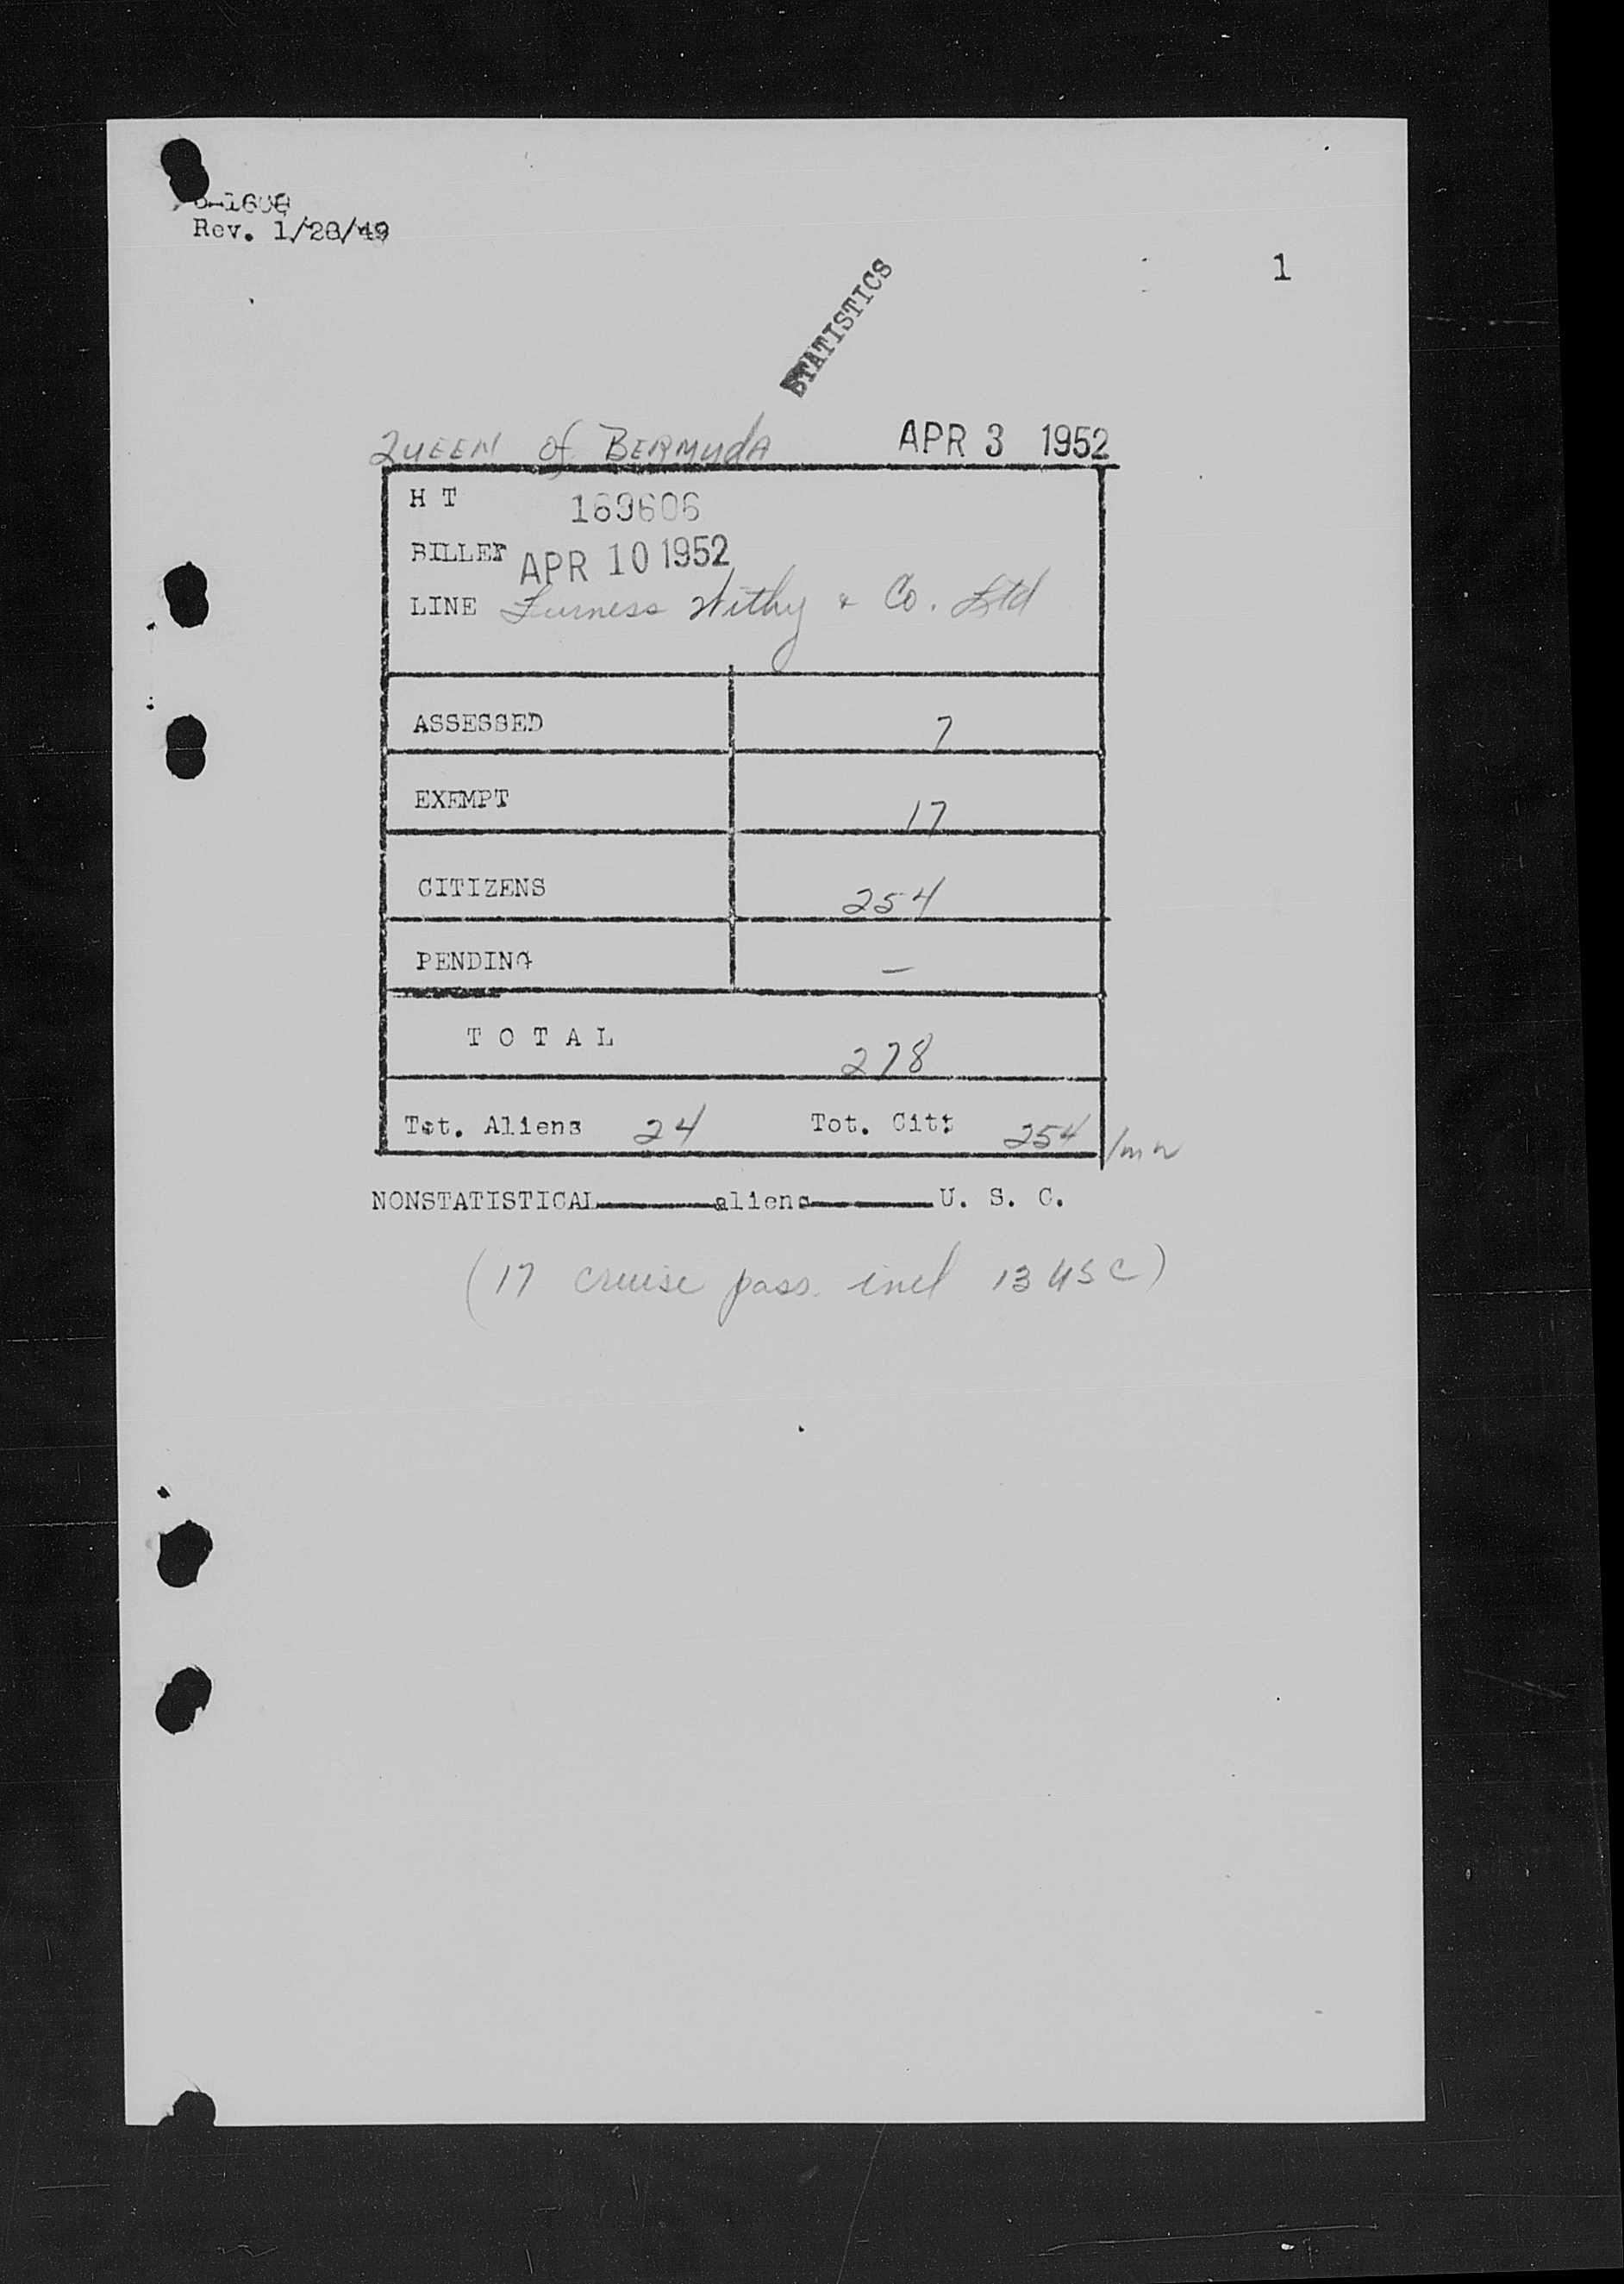 Rev. 1/28/49
1
STATISTICS
QUEEN of BERMUDA APR 3 1952
H T 169606
BILLET APR 10 1952
LINE Furness Withy & Co. Ltd
ASSESSED 7
EXEMPT 17
CITIZENS 254
PENDING —
T O T A L 278
Tot. Aliens 24 Tot. Cit: 254
NONSTATISTICAL aliens U. S. C.
(17 cruise pass. incl 13 USC)